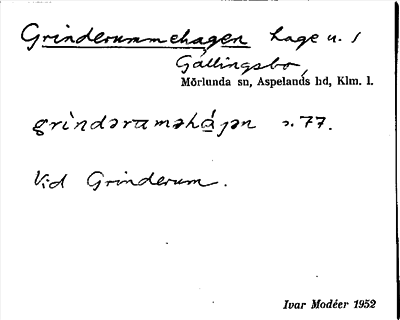 Grinderummehagen hage u. /
Gällingsbo,
Mörlunda sn, Aspelands hd, Klm. l.
grìndəramə​há̱jən s. 77.
Vid Grinderum.
Ivar Modéer 1952